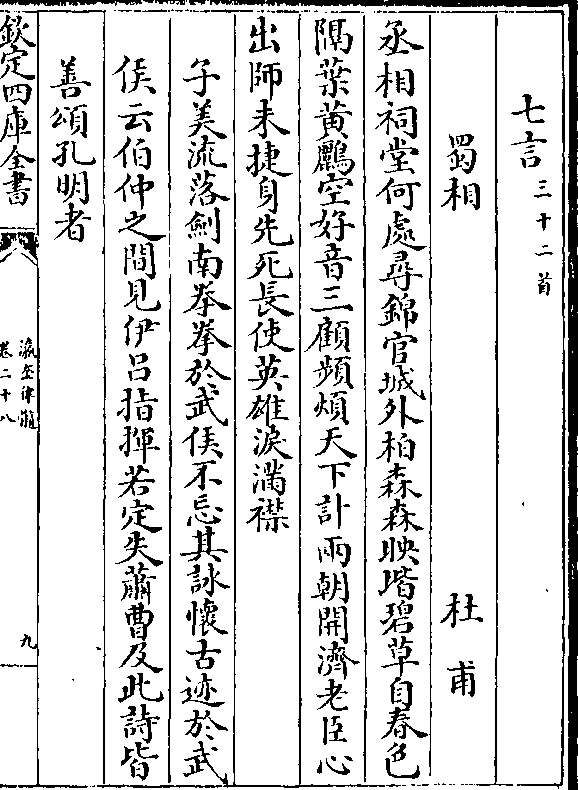 七言三十二首
蜀相 杜甫
丞相祠堂何處尋錦官城外柏森森映堦碧草自春色
隔葉黃鸝空好音三顧頻煩天下計兩朝開濟老臣心
出師未捷身先死長使英雄淚滿襟
子美流落劍南拳拳於武侯不忘其詠懷古迹於武
侯云伯仲之間見伊呂指揮若定失蕭曹及此詩皆
善頌孔明者
欽定四庫全書
瀛奎律髓
卷二十八
九